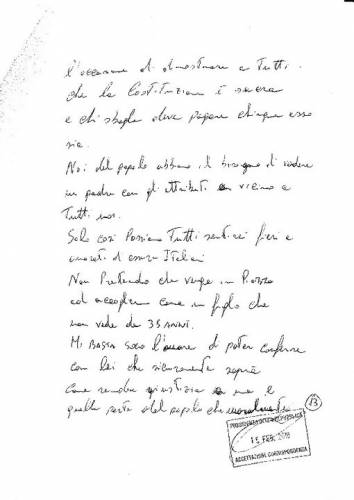 l'occasione di dimostrare a Tutti
che la Costituzione è sacra
e chi sbaglia deve pagare chiunque esso
sia.
Noi del popolo abbiamo il bisogno di vedere
un padre con gli attributi vicino a
Tutti noi.
Solo così Possiamo Tutti sentirci fieri e
onorati d'essere Italiani
Non Pretendo che venga in Piazza
ad accogliermi come un figlio che
non vede da 35 ANNI.
Mi BASTA solo l'onore di poter conferire
con Lei che sicuramente saprà
come rendere giustizia a me e
quella parte del popolo che moralmente
13
PRESIDENZA DELLA REPUBBLICA
15 FEB. 2018
ACCETTAZIONE CORRISPONDENZA